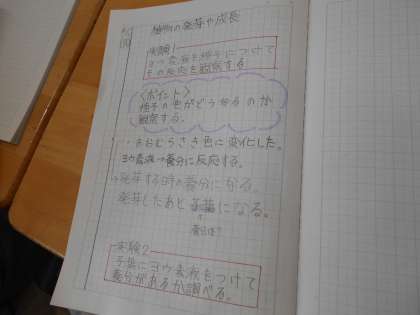 植物の発芽や成長
実験1
ヨウ素液を種子につけて
その反応を観察する
<ポイント>
種子の色がどうなるのか
観察する。
・あおむらさき色に変化した。
ヨウ素液→養分に反応する。
→発芽する時の養分になる。
発芽したあと 養分になる。
養分は?
実験2
子葉にヨウ素液をつけて
養分があるか調べる。